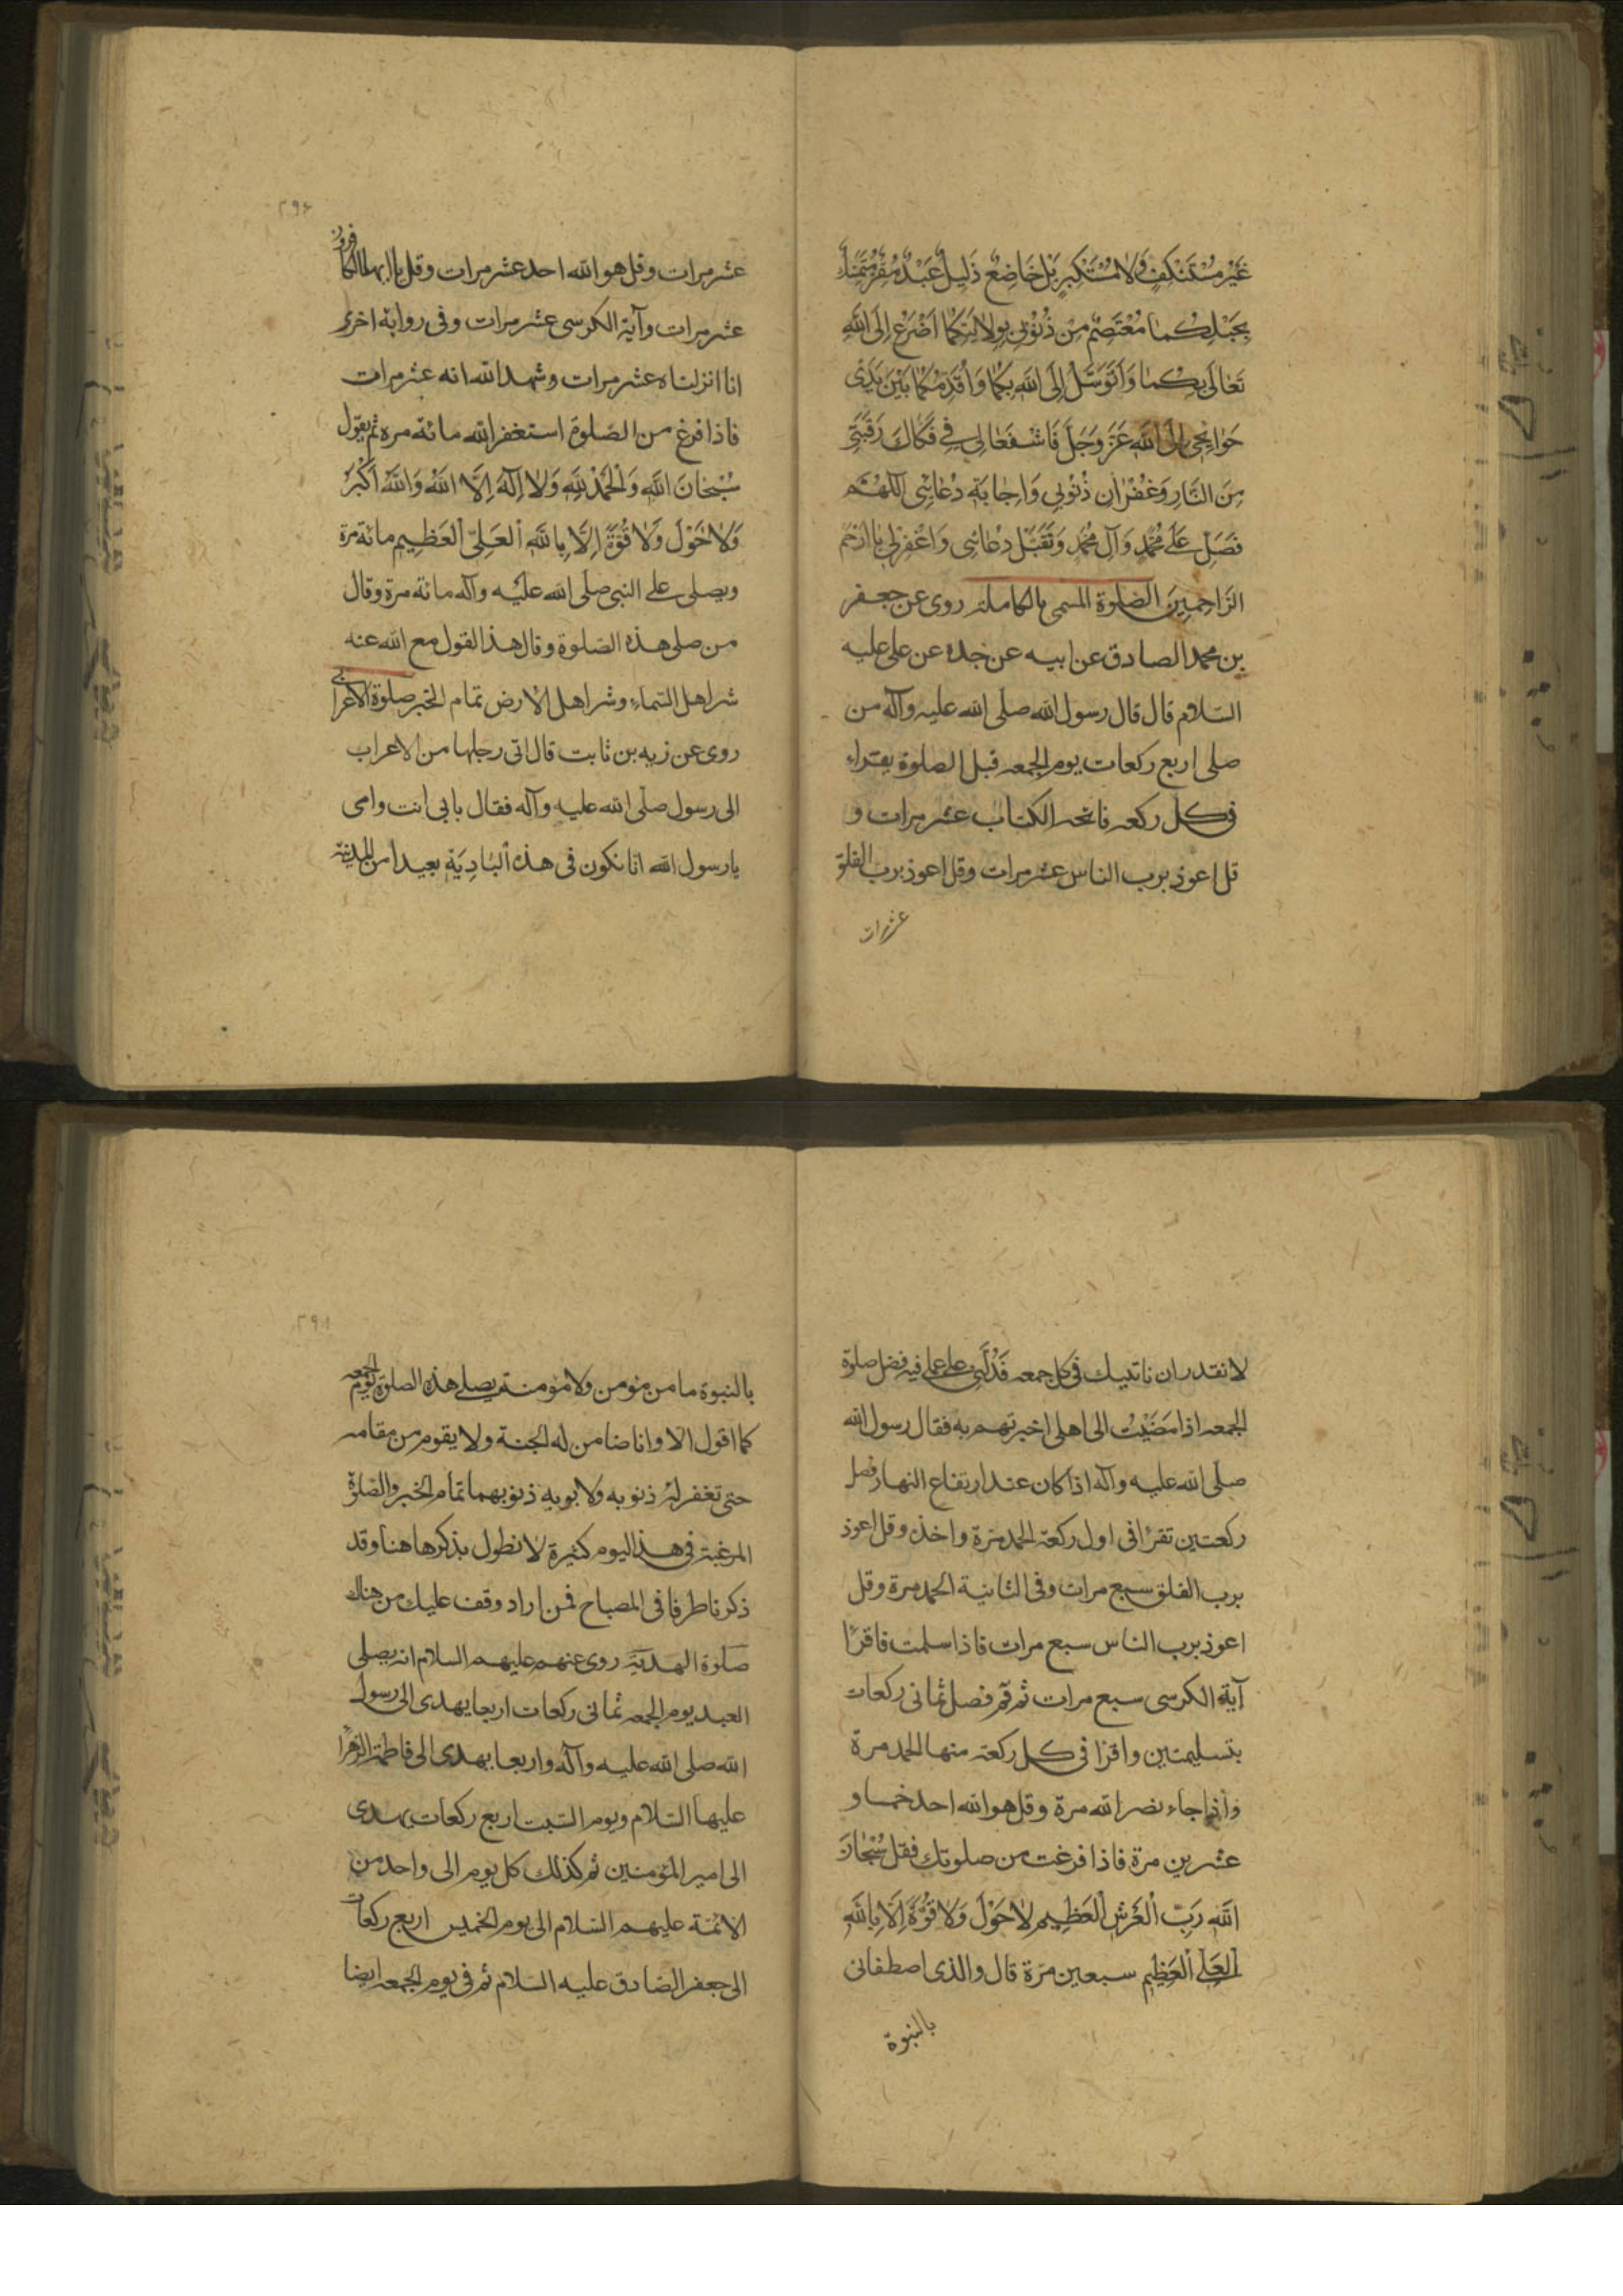 غَيْرَ مُسْتَنْكِفٍ وَلَا مُسْتَكْبِرٍ بَلْ خَاضِعٌ ذَلِيلٌ عَبْدٌ مُقِرٌّ مُتَمَسِّكٌ
بِحَبْلِكُمَا مُعْتَصِمٌ مِنْ ذُنُوبِي بِوِلَايَتِكُمَا أَضْرَعُ إِلَى اللَّهِ
تَعَالَى بِكُمَا وَأَتَوَسَّلُ إِلَى اللَّهِ بِكُمَا وَأُقَدِّمُكُمَا بَيْنَ يَدَيْ
حَوَائِجِي إِلَى اللَّهِ عَزَّ وَجَلَّ فَاشْفَعَا لِي فِي فَكَاكِ رَقَبَتِي
مِنَ النَّارِ وَغُفْرَانِ ذُنُوبِي وَإِجَابَةِ دُعَائِي اَللَّهُمَّ
فَصَلِّ عَلَى مُحَمَّدٍ وَآلِ مُحَمَّدٍ وَتَقَبَّلْ دُعَائِي وَاغْفِرْ لِي يَا أَرْحَمَ
الرَّاحِمِينَ الصلوة المسمى بالكاملة روى عن جعفر
بن محمد الصادق عن ابيه عن جده عن على عليه
السلام قال قال رسول الله صلى الله عليه وآله من
صلى اربع ركعات يوم الجمعه قبل الصلوة يقراء
فى كل ركعه فاتحه الكتاب عشر مرات و
قل اعوذ برب الناس عشر مرات وقل اعوذ برب الفلق
عشر مرات
٢٩٤
عشر مرات وقل هو الله احد عشر مرات وقل يا ايها الكافرون
عشر مرات وآية الكرسى عشر مرات وفى رواية اخرى
انا انزلناه عشر مرات وشهد الله انه عشر مرات
فاذا فرغ من الصلوة استغفر الله مائة مره ثم يقول
سُبْحَانَ اللَّهِ وَالْحَمْدُ لِلَّهِ وَلَا إِلَهَ إِلَّا اللَّهُ وَاللَّهُ أَكْبَرُ
وَلَا حَوْلَ وَلَا قُوَّةَ إِلَّا بِاللَّهِ الْعَلِيِّ الْعَظِيمِ مائة مرة
ويصلى على النبى صلى الله عليه وآله مائة مرة وقال
من صلى هذه الصلوة وقال هذا القول مع الله عنه
شر اهل السماء وشر اهل الارض تمام الخبر صلوة الاعرابى
روى عن زيه بن ثابت قال اتى رجلها من الاعراب
الى رسول صلى الله عليه وآله فقال بابى انت وامى
يا رسول الله انا نكون فى هذه الْبَادِيَةِ بعيدا من المدينة
لا نقدر ان ناتيك فى كل جمعه فَدُلَّنِي على على فيه فضل صلوة
الجمعه اذا مَضَيْتُ الى اهلى اخبرتهم به فقال رسول الله
صلى الله عليه وآله اذا كان عند ارتفاع النهار فصل
ركعتين تقرا فى اول ركعة الحمد مرة واخذ وقل اعوذ
برب الفلق سبع مرات وفى الثانية الحمد مرة وقل
اعوذ برب الناس سبع مرات فاذا سلمت فاقرا
آية الكرسى سبع مرات ثم قم فصل ثمانى ركعات
بتسليمتين واقرا فى كل ركعة منها الحمد مرة
واذا جاء نصر الله مرة وقل هو الله احد خمسا و
عشرين مرة فاذا فرغت من صلوتك فقل سُبْحَانَ
اللَّهِ رَبِّ الْعَرْشِ الْعَظِيمِ لَا حَوْلَ وَلَا قُوَّةَ إِلَّا بِاللَّهِ
الْعَلِيِّ الْعَظِيمِ سبعين مرة قال والذى اصطفانى
بالنبوة
بالنبوة ما من مؤمن ولا مؤمنة يصلى هذه الصلوة يوم الجمعه
كما اقول الا وانا ضامن له الجنة ولا يقوم من مقامه
حتى تغفر له ذنوبه ولابويه ذنوبهما تمام الخبر والصلوة
المرغبة فى هذا اليوم كثيرة لا نطول بذكرها هنا وقد
ذكرنا طرفا فى المصباح فمن اراد وقف عليك من هناك
صلوة الهدية روى عنهم عليهم السلام انه يصلى
العبد يوم الجمعه ثمانى ركعات اربعا يهدى الى رسول
الله صلى الله عليه وآله واربعا يهدى الى فاطمة الزهرا
عليها السلام ويوم السبت اربع ركعات يهدى
الى امير المؤمنين ثم كذلك كل يوم الى واحد من
الائمة عليهم السلام الى يوم الخميس اربع ركعات
الى جعفر الصادق عليه السلام ثم فى يوم الجمعه ايضا